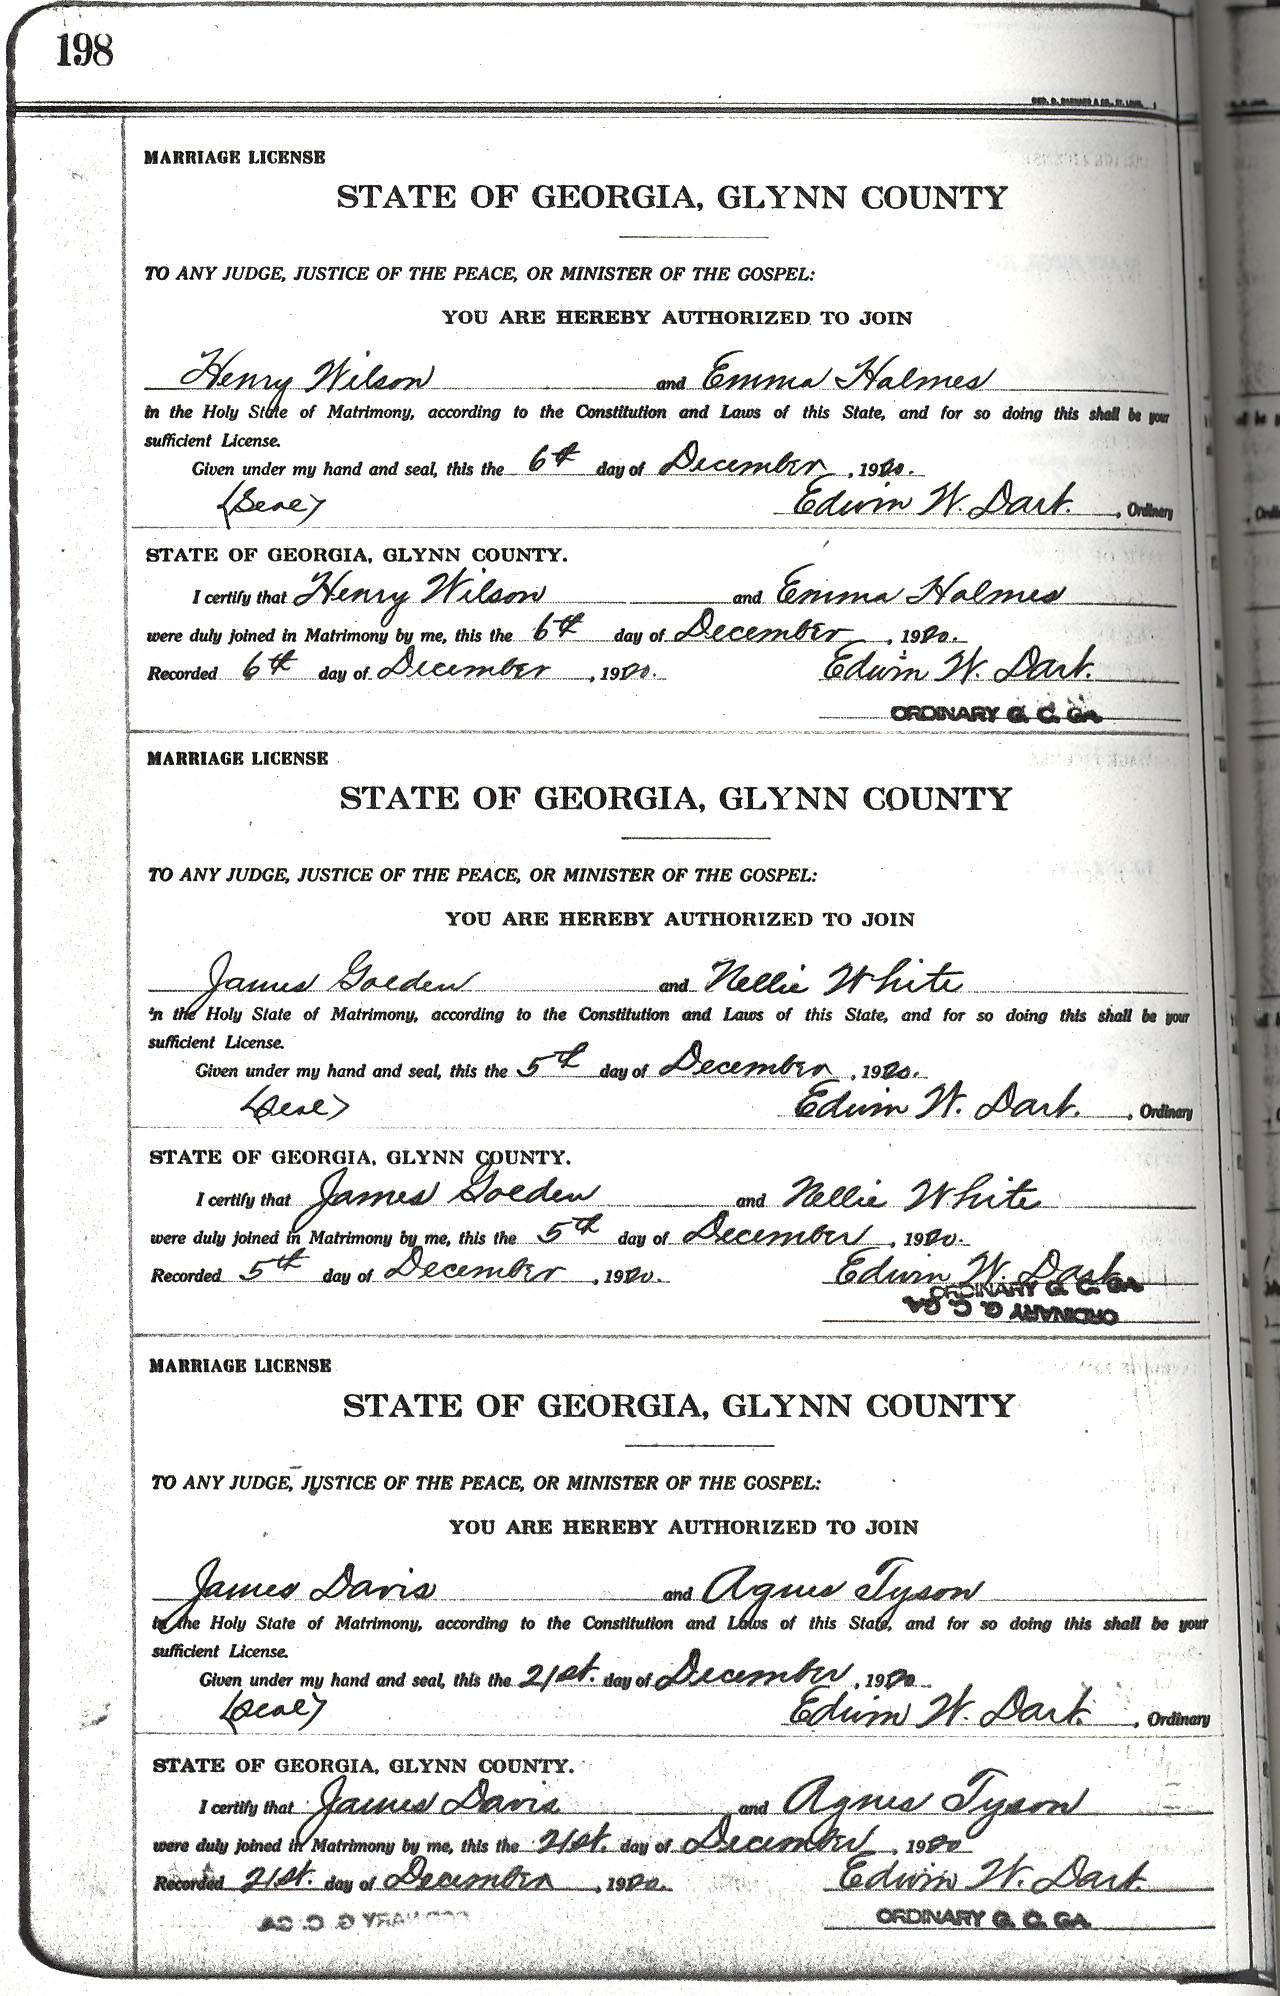 198
GEO. D. BARNARD & CO., ST. LOUIS
MARRIAGE LICENSE
STATE OF GEORGIA, GLYNN COUNTY
TO ANY JUDGE, JUSTICE OF THE PEACE, OR MINISTER OF THE GOSPEL:
YOU ARE HEREBY AUTHORIZED TO JOIN
Henry Wilson and Emma Holmes
in the Holy State of Matrimony, according to the Constitution and Laws of this State, and for so doing this shall be your
sufficient License.
Given under my hand and seal, this the 6th day of December, 1920.
(Seal) Edwin W. Dart., Ordinary
STATE OF GEORGIA, GLYNN COUNTY.
I certify that Henry Wilson and Emma Holmes
were duly joined in Matrimony by me, this the 6th day of December, 1920.
Recorded 6th day of December, 1920. Edwin W. Dart.
ORDINARY G. C. GA
MARRIAGE LICENSE
STATE OF GEORGIA, GLYNN COUNTY
TO ANY JUDGE, JUSTICE OF THE PEACE, OR MINISTER OF THE GOSPEL:
YOU ARE HEREBY AUTHORIZED TO JOIN
James Golden and Nellie White
in the Holy State of Matrimony, according to the Constitution and Laws of this State, and for so doing this shall be your
sufficient License.
Given under my hand and seal, this the 5th day of December, 1920.
(Seal) Edwin W. Dart., Ordinary
STATE OF GEORGIA, GLYNN COUNTY.
I certify that James Golden and Nellie White
were duly joined in Matrimony by me, this the 5th day of December, 1920.
Recorded 5th day of December, 1920. Edwin W. Dart
ORDINARY G. C. GA
ORDINARY G. C. GA
MARRIAGE LICENSE
STATE OF GEORGIA, GLYNN COUNTY
TO ANY JUDGE, JUSTICE OF THE PEACE, OR MINISTER OF THE GOSPEL:
YOU ARE HEREBY AUTHORIZED TO JOIN
James Davis and Agnes Tyson
in the Holy State of Matrimony, according to the Constitution and Laws of this State, and for so doing this shall be your
sufficient License.
Given under my hand and seal, this the 21st. day of December, 1920
(Seal) Edwin W. Dart., Ordinary
STATE OF GEORGIA, GLYNN COUNTY.
I certify that James Davis and Agnes Tyson
were duly joined in Matrimony by me, this the 21st. day of December, 1920
Recorded 21st. day of December, 1920. Edwin W. Dart.
ORDINARY G. C. GA